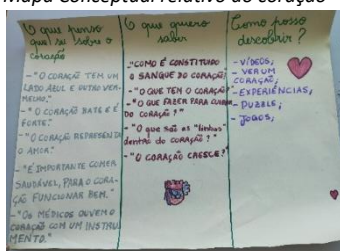 Mapa Conceptual relativo ao coração
O que penso
que sei sobre o
coração
- "O CORAÇÃO TEM UM
LADO AZUL E OUTRO VER-
MELHO."
- "O CORAÇÃO BATE E É
FORTE."
- "O CORAÇÃO REPRESENTA
O AMOR."
- "É IMPORTANTE COMER
SAUDÁVEL, PARA O CORA-
ÇÃO FUNCIONAR BEM."
- "OS MÉDICOS OUVEM O
CORAÇÃO COM UM INSTRU
MENTO."
O que quero
saber
- "COMO É CONSTITUIDO
O SANGUE DO CORAÇÃO?"
- "O QUE TEM O CORAÇÃO?"
- "O QUE FAZER PARA CUIDAR
DO CORAÇÃO?"
- "O que são as "linhas"
dentro do CORAÇÃO?"
- "O CORAÇÃO CRESCE?"
Como posso
descobrir?
- VÍDEOS;
- VER UM
CORAÇÃO;
- EXPERIÊNCIAS;
- PUZZLE;
- JOGOS;